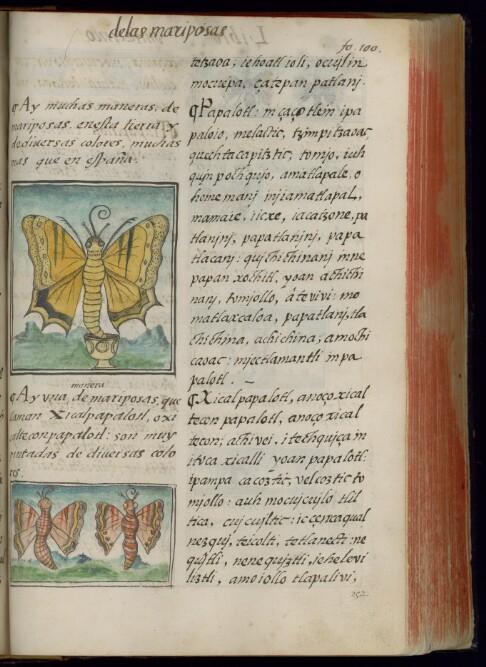 delas mariposas
fo. 100.
¶ Ay muchas maneras, de
mariposas, enesta tierra, y
de diuersas colores, muchas
mas que en españa.
¶ Ay vna, manera de mariposas, que
laman Xicalpapalotl, o xi
caltecon papalotl: son muy
pintadas de diuersas colo
res.
tetzaoa, iehoatl ioli, occujlin
mocuepa, çatepan patlanj.
¶ Papalotl: in çaço tlein ipa
paloio, melactic, tzimpitzaoac,
quechtacapitztic, tomjo, iuh
qujn pochqujo, amatlapale, o
home manj injiamatlapal,
mamaie, icxe, iacatzone, pa
tlanjnj, papatlanjnj, papa
tlacanj: quichichinanj inne
papan xochitl, yoan achichi
nanj, tomjollo, ate vivi: mo
matlaxcaloa, papatlanj, tla
chichina, achichina; amochi
caoac: mjectlamantli in pa
palotl.
¶ Xical papalotl, anoço xical
tecon papalotl, anoço xical
tecon; itechqujça in
itoca xicalli yoan papalotl:
ipampa cacoztic, vel coztic to
mjollo: auh mocujcujlo tlil
tica, cujcujltic: ic cenca qual
nezquj, teicolti, tetlanecti: ne
qujztli, nenequjztli, ieheleví
liztli, amoiollo tlapalivi,
252